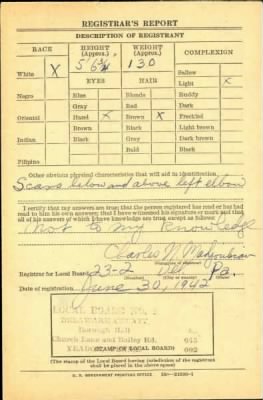 REGISTRAR'S REPORT
DESCRIPTION OF REGISTRANT
RACE HEIGHT (Approx.) WEIGHT (Approx.) COMPLEXION
White X 5' 6½ 130 Sallow
EYES HAIR Light X
Negro Blue Blonde Ruddy
Gray Red Dark
Oriental Hazel X Brown X Freckled
Brown Black Light brown
Indian Black Gray Dark brown
Bald Black
Filipino
Other obvious physical characteristics that will aid in identification
Scars below and above left elbow
I certify that my answers are true; that the person registered has read or has had
read to him his own answers; that I have witnessed his signature or mark and that
all of his answers of which I have knowledge are true, except as follows:
Not to my knowledge
Charles W.
Registrar for Local Board 23-2 Del Pa.
(Number) (City or county) (State)
Date of registration June 30, 1942
LOCAL BOARD NO. 2
DELAWARE COUNTY
Borough Hall
Church Lane and Bailey Rd. 045
YEADON 002
(STAMP OF LOCAL BOARD)
(The stamp of the Local Board having jurisdiction of the registrant
shall be placed in the above space)
U. S. GOVERNMENT PRINTING OFFICE